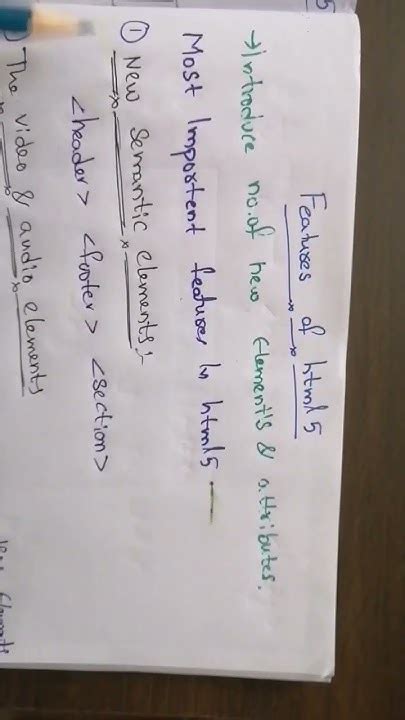 Features of html5
→Introduce no.of new Element's & attributes.
Most Important features in html5
① New Semantic elements:-
<header> <footer> <section>
The video & audio elements